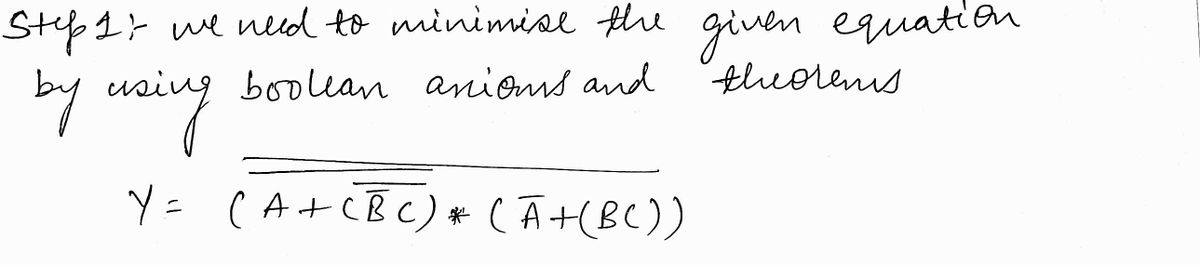 Step 1:- we need to minimise the given equation
by using boolean axioms and theorems
Y = \overline{\overline{(A + \overline{(\overline{B} C)}} * (\overline{A} + (BC))}